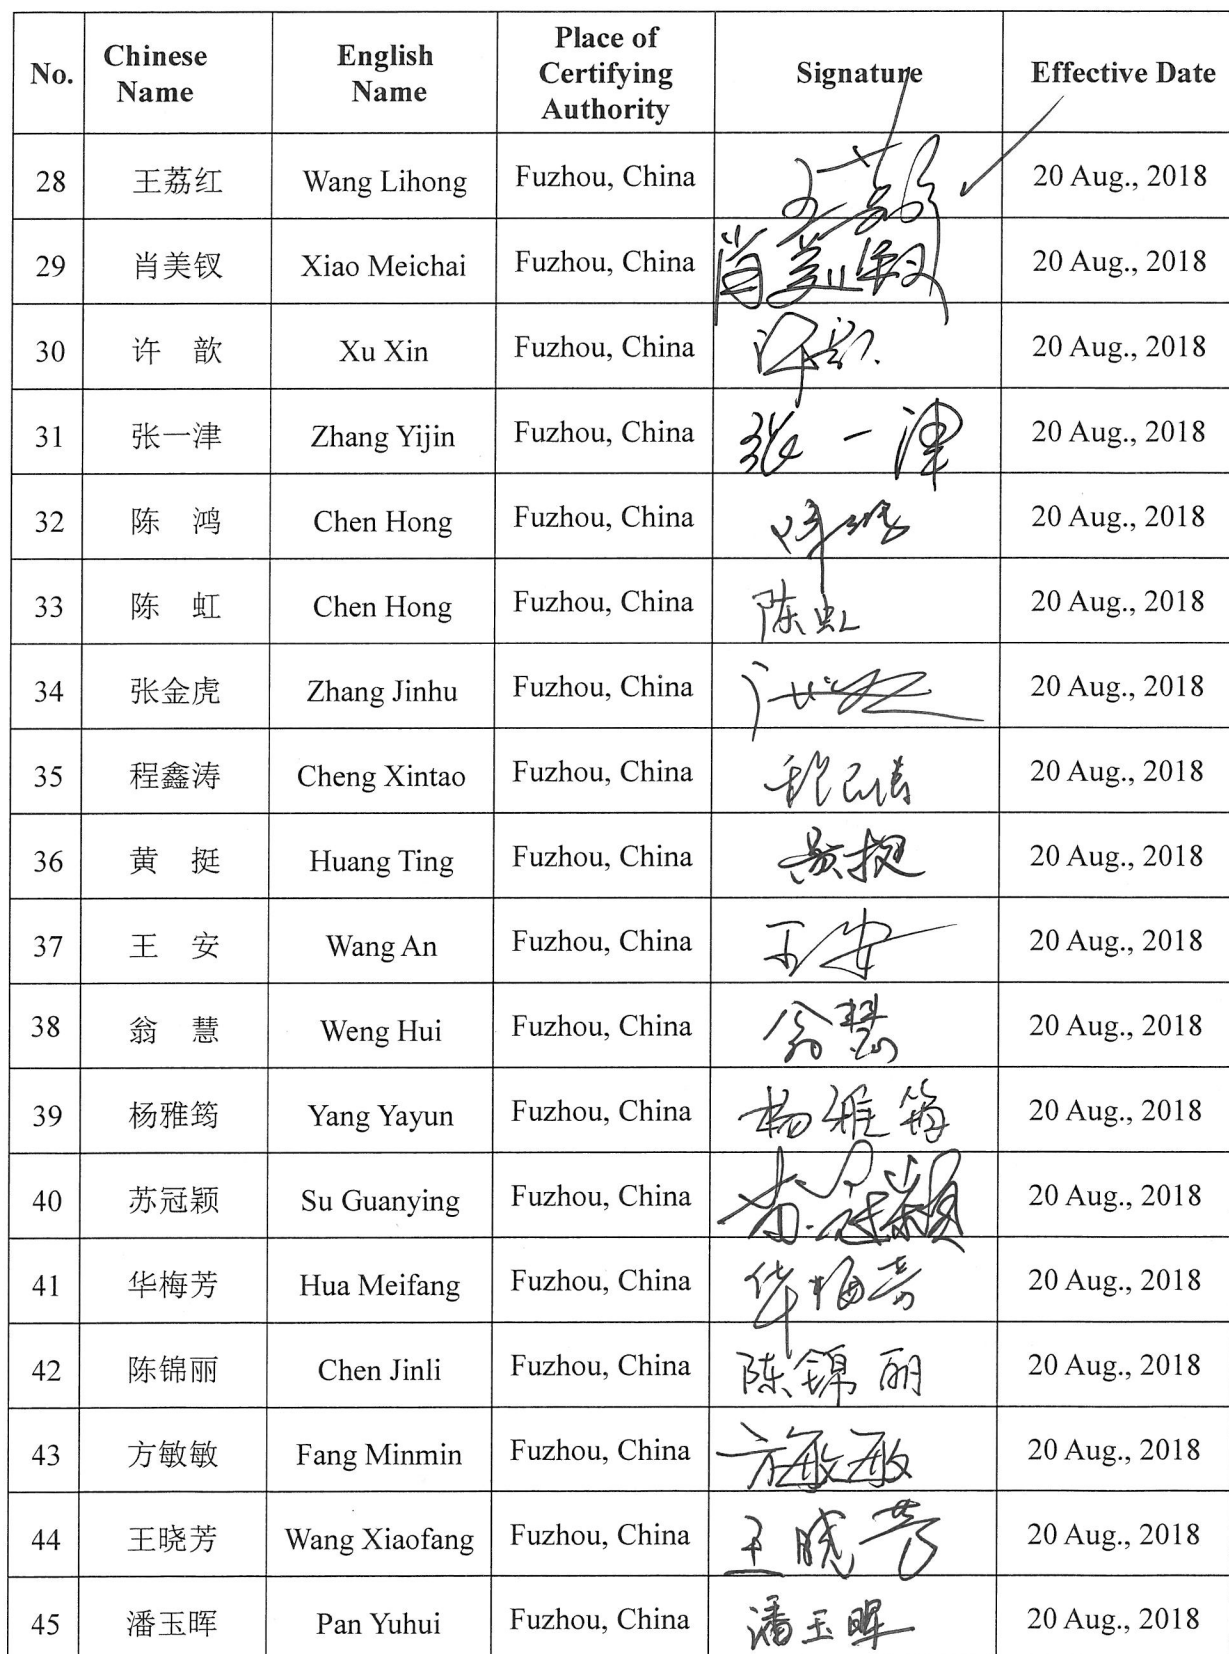 No. Chinese Name English Name Place of Certifying Authority Signature Effective Date
28 王荔红 Wang Lihong Fuzhou, China 20 Aug., 2018
29 肖美钗 Xiao Meichai Fuzhou, China 肖美钗 20 Aug., 2018
30 许 歆 Xu Xin Fuzhou, China 许歆 20 Aug., 2018
31 张一津 Zhang Yijin Fuzhou, China 张一津 20 Aug., 2018
32 陈 鸿 Chen Hong Fuzhou, China 陈鸿 20 Aug., 2018
33 陈 虹 Chen Hong Fuzhou, China 陈虹 20 Aug., 2018
34 张金虎 Zhang Jinhu Fuzhou, China 20 Aug., 2018
35 程鑫涛 Cheng Xintao Fuzhou, China 20 Aug., 2018
36 黄 挺 Huang Ting Fuzhou, China 黄挺 20 Aug., 2018
37 王 安 Wang An Fuzhou, China 王安 20 Aug., 2018
38 翁 慧 Weng Hui Fuzhou, China 翁慧 20 Aug., 2018
39 杨雅筠 Yang Yayun Fuzhou, China 杨雅筠 20 Aug., 2018
40 苏冠颖 Su Guanying Fuzhou, China 苏冠颖 20 Aug., 2018
41 华梅芳 Hua Meifang Fuzhou, China 华梅芳 20 Aug., 2018
42 陈锦丽 Chen Jinli Fuzhou, China 陈锦丽 20 Aug., 2018
43 方敏敏 Fang Minmin Fuzhou, China 方敏敏 20 Aug., 2018
44 王晓芳 Wang Xiaofang Fuzhou, China 王晓芳 20 Aug., 2018
45 潘玉晖 Pan Yuhui Fuzhou, China 潘玉晖 20 Aug., 2018